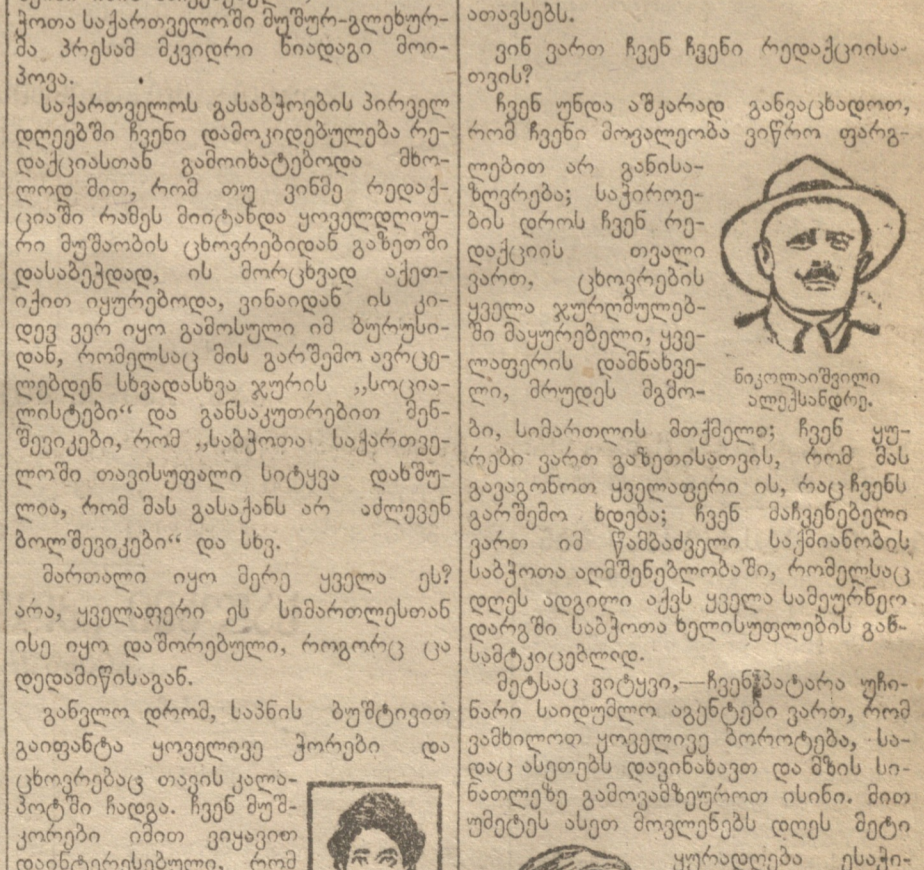 ჭოთა საქართველოში მუშურ-გლეხურ-
მა პრესამ მკვიდრი ნიადაგი მოი-
პოვა.
საქართველოს გასაბჭოების პირველ
დღეებში ჩვენი დამოკიდებულება რე-
დაქციასთან გამოიხატებოდა მხო-
ლოდ მით, რომ თუ ვინმე რედაქ-
ციაში რამეს მიიტანდა ყოველდღიუ-
რი მუშაობის ცხოვრებიდან გაზეთში
დასაბეჭდად, ის მორცხვად აქეთ-
იქით იყურებოდა, ვინაიდან ის კი-
დევ ვერ იყო გამოსული იმ ბურუსი-
დან, რომელსაც მის გარშემო ავრცე-
ლებდენ სხვადასხვა ჯურის „სოცია-
ლისტები“ და განსაკუთრებით მენ-
შევიკები, რომ „საბჭოთა საქართვე-
ლოში თავისუფალი სიტყვა დახშუ-
ლია, რომ მას გასაქანს არ აძლევენ
ბოლშევიკები“ და სხვ.
მართალი იყო მერე ყველა ეს?
არა, ყველაფერი ეს სიმართლესთან
ისე იყო დაშორებული, როგორც ცა
დედამიწისაგან.
განვლო დრომ, საპნის ბუშტივით
გაიფანტა ყოველივე ჭორები და
ცხოვრებაც თავის კალა-
პოტში ჩადგა. ჩვენ მუშ-
კორები იმით ვიყავით
დაინტერესებული, რომ
ათავსებს.
ვინ ვართ ჩვენ ჩვენი რედაქციისა-
თვის?
ჩვენ უნდა აშკარად განვაცხადოთ,
რომ ჩვენი მოვალეობა ვიწრო ფარგ-
ლებით არ განისა-
ზღვრება; საჭიროე-
ბის დროს ჩვენ რე-
დაქციის თვალი
ვართ, ცხოვრების
ყველა ჯურღმულებ-
ში მაყურებელი, ყვე-
ლაფერის დამნახვე-
ლი, მრუდეს მგმო-
ნიკოლაიშვილი
ალექსანდრე.
ბი, სიმართლის მთქმელი; ჩვენ ყუ-
რები ვართ გაზეთისათვის, რომ მას
გავაგონოთ ყველაფერი ის, რაც ჩვენს
გარშემო ხდება; ჩვენ მაჩვენებელი
ვართ იმ წამბაძველი საქმიანობის
საბჭოთა აღმშენებლობაში, რომელსაც
დღეს ადგილი აქვს ყველა სამეურნეო
დარგში საბჭოთა ხელისუფლების გან-
სამტკიცებლად.
მეტსაც ვიტყვი,—ჩვენ პატარა უჩი-
ნარი საიდუმლო აგენტები ვართ, რომ
ვამხილოთ ყოველივე ბოროტება, სა-
დაც ასეთებს დავინახავთ და მზის სი-
ნათლეზე გამოვამზეუროთ ისინი. მით
უმეტეს ასეთ მოვლენებს დღეს მეტი
ყურადღება ესაჭი-